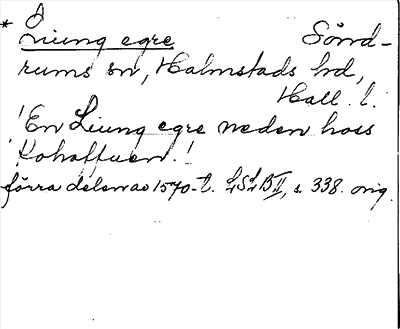 * Liung egre Sönd-
rums sn, Halmstads hd,
Hall. l.
! En Liung egre neden hoss
Kohaffuen. !
förra delen av 1570-t. S. 338. orig.